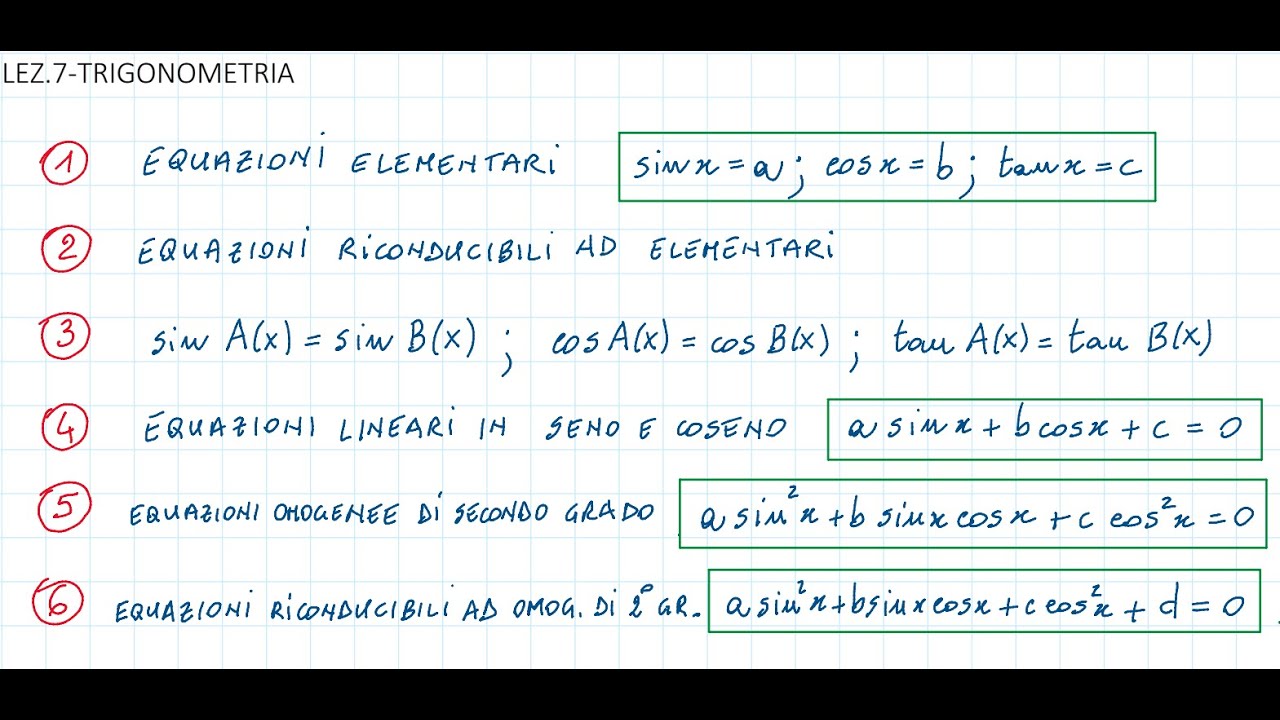 LEZ.7-TRIGONOMETRIA
1 EQUAZIONI ELEMENTARI sin x = a ; cos x = b ; tan x = c
2 EQUAZIONI RICONDUCIBILI AD ELEMENTARI
3 sin A(x) = sin B(x) ; cos A(x) = cos B(x) ; tan A(x) = tan B(x)
4 EQUAZIONI LINEARI IN SENO E COSENO a sin x + b cos x + c = 0
5 EQUAZIONI OMOGENEE DI SECONDO GRADO a sin² x + b sin x cos x + c cos² x = 0
6 EQUAZIONI RICONDUCIBILI AD OMOG. DI 2° GR. a sin² x + b sin x cos x + c cos² x + d = 0